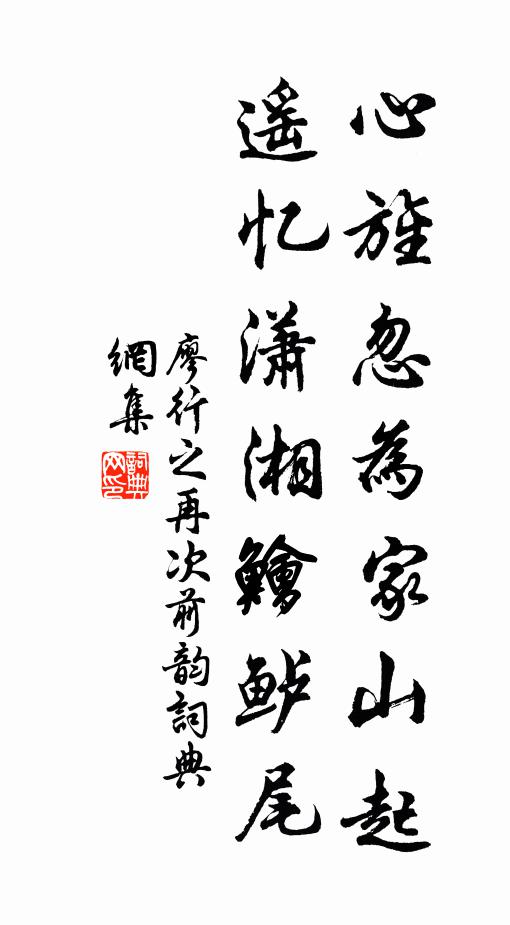 心旌忽為家山起
遥忆潇湘鱠鲈尾
廖行之再次前韵詞典
網集
詞典網印